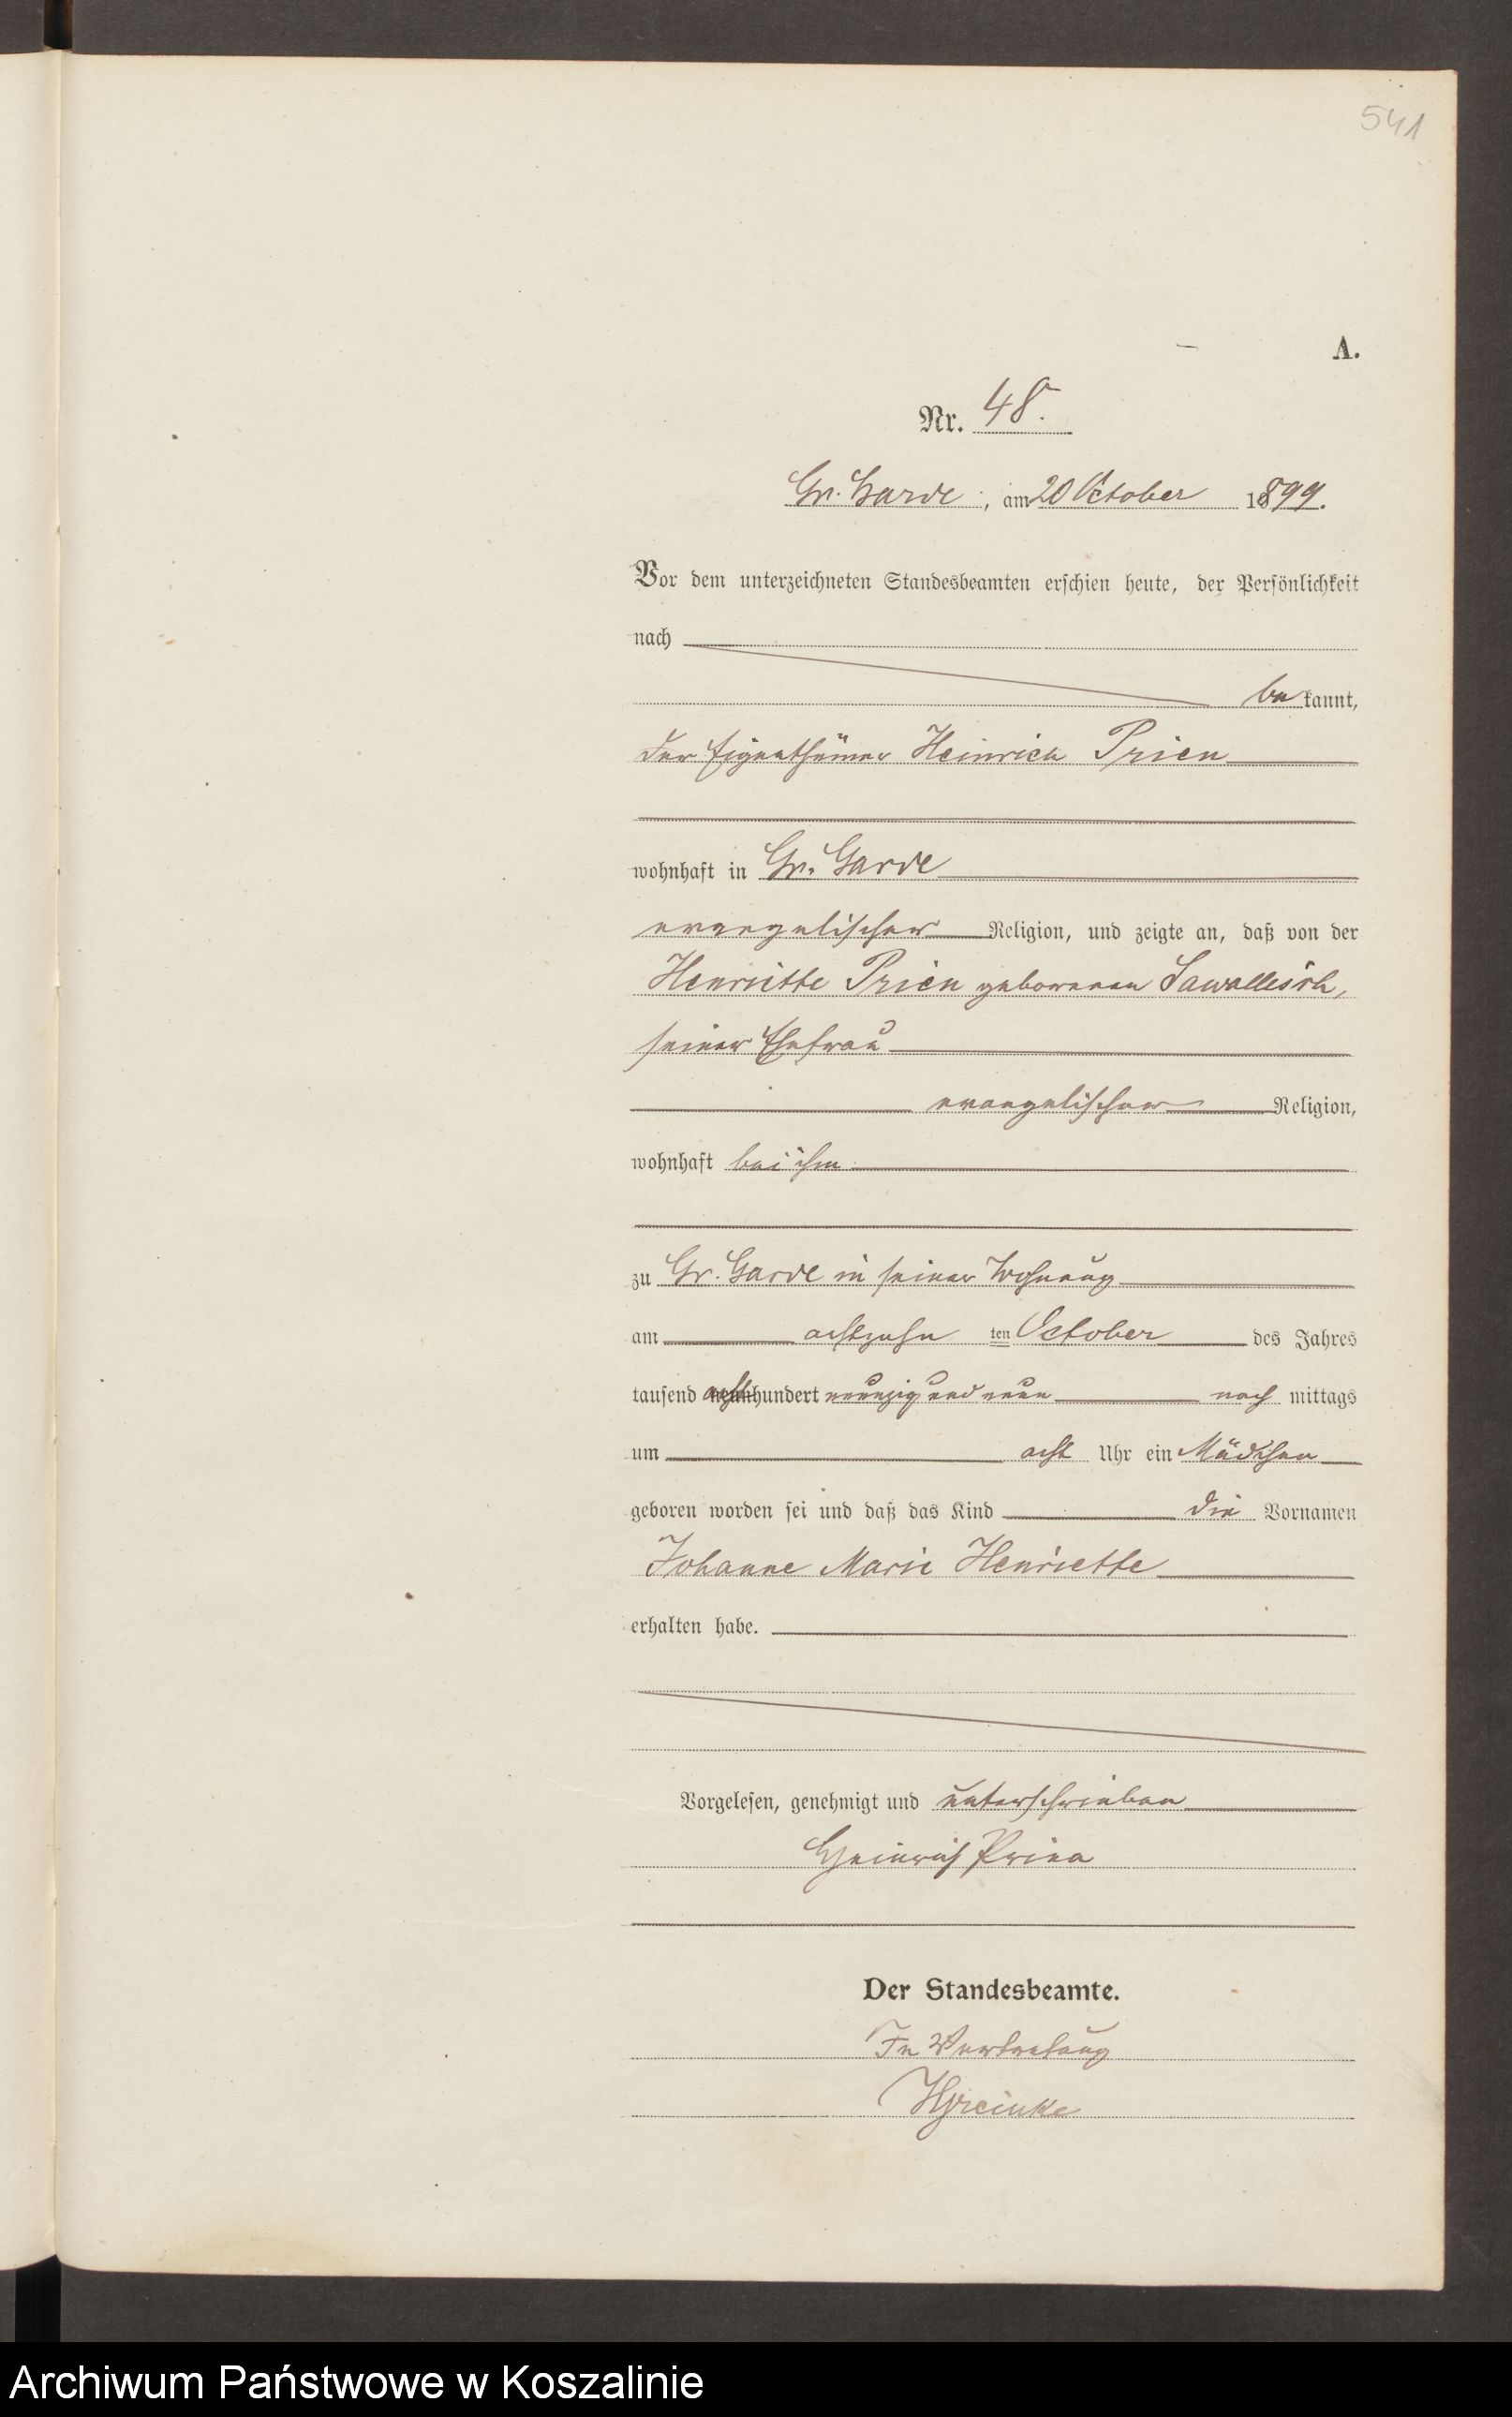 541
A.
Nr. 48.
Gr. Garde, am 20 October 1899.
Vor dem unterzeichneten Standesbeamten erschien heute, der Persönlichkeit
nach
be kannt,
der Eigenthümer Heinrich Prien
wohnhaft in Gr. Garde
evangelischer Religion, und zeigte an, daß von der
Henriette Prien geborenen Sawallisch,
seiner Ehefrau
evangelischer Religion,
wohnhaft bei ihm
zu Gr. Garde in seiner Wohnung
am achtzehn ten October des Jahres
tausend acht hundert neunzig und neun nach mittags
um acht Uhr ein Mädchen
geboren worden sei und daß das Kind die Vornamen
Johanne Marie Henriette
erhalten habe.
Vorgelesen, genehmigt und unterschrieben
Heinrich Prien
Der Standesbeamte.
In Vertretung
Archiwum Państwowe w Koszalinie